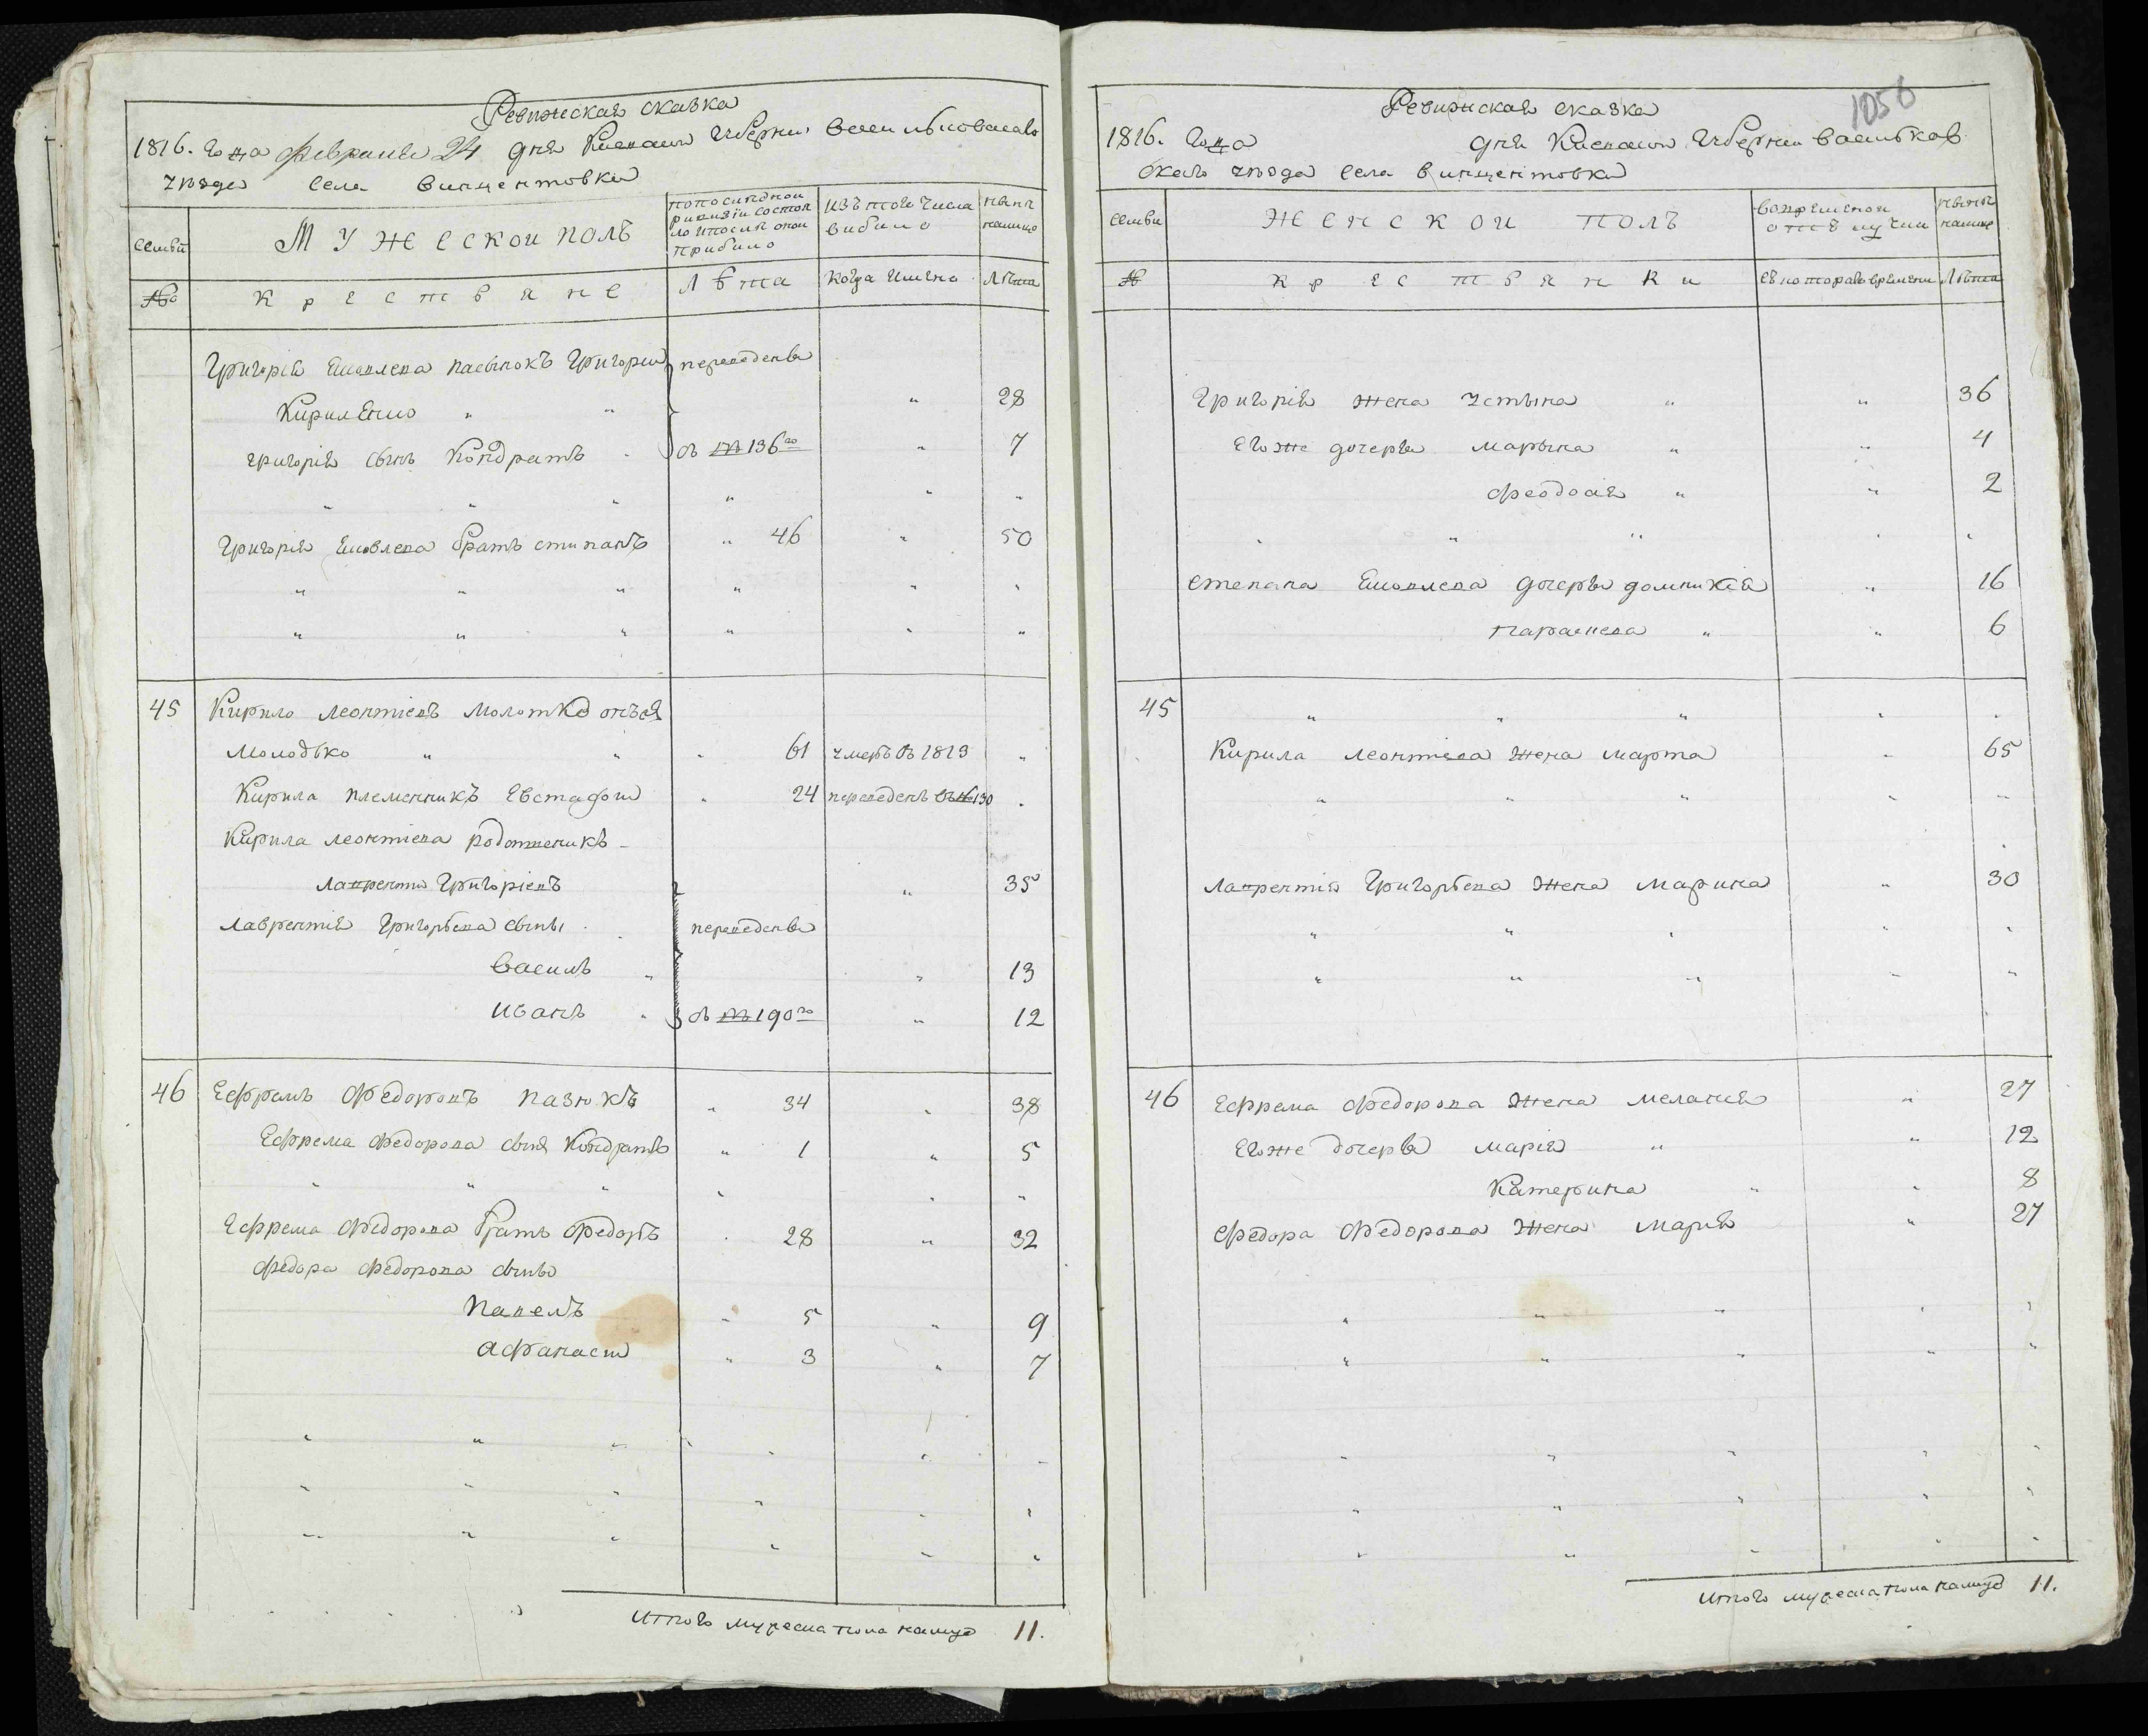 Ревижская сказка
1816. года февраля 24 дня Киевской губернии
уезда села Винцентовки
семьи
Мужеской полъ
из того числа выбыло
ныне налицо
№
Крестьяне
Лѣта
когда имено
Лѣта
Григорія Яковлева пасынокъ Григорей
переведены
Кирилѣнко " " " 28
Григорія сынъ Кондратъ 136го " 7
Григорія Яковлева братъ Степанъ " 46 " 50
45 Кирило Леонтіевъ Молотко онъ
Молодько " " 61 умеръ въ 1813 "
Кирила племенникъ Евстафій " 24 переведенъ 130
Кирила Леонтіева
Лаврентій Григоріевъ " 35
Лаврентія Григорьева сыны переведены
Василь " " 13
Иванъ " 190го " 12
46 Ефремъ Федоровъ Пазюкъ " 34 " 38
Ефрема Федорова сынъ Кондратъ " 1 " 5
Ефрема Федорова братъ Федоръ " 28 " 32
Федора Федорова сыны
Павелъ " 5 " 9
Афанасій " 3 " 7
Итого мужеска пола налицо 11.
1056
Ревижская сказка
1816. года дня Киевской губернии Васильков
скаго уезда села Винцентовки
семьи
Женской полъ
ныне налицо
№
Крестьянки
съ котораго времени
Лѣта
Григорія жена Устына " " 36
Его же дочери Марына " " 4
Феодосія " " 2
Степана Яковлева дочеры Домникія " 16
Параскева " " 6
45 " " "
Кирила Леонтіева жена Марта " 65
Лаврентія Григорьева жена Марина " 30
46 Ефрема Федорова жена Меланія " 27
Его же дочеры Марія " " 12
Катерина " " 8
Федора Федорова жена Марія " 27
Итого пола налицо 11.